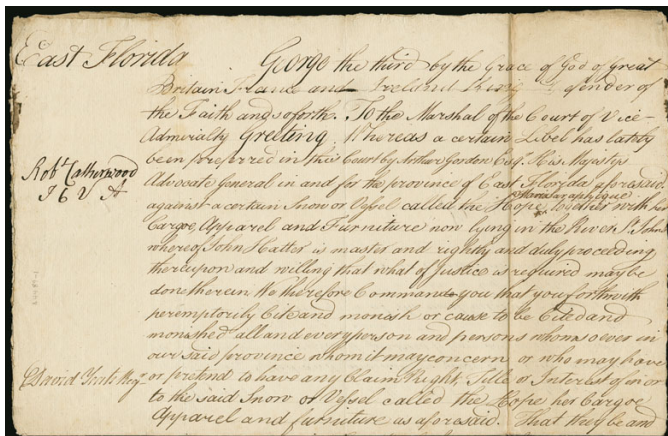 East Florida
George the third by the Grace of God of Great
Britain France and Ireland King Defender of
the Faith and so forth. To the Marshal of the Court of Vice-
Admiralty Greeting, Whereas a certain Libel has lately
been preferred in this Court by Arthur Gordon Esq. His Majestys
Robt. Catherwood
J C V A
Advocate General in and for the province of East Florida aforesaid
against a certain Snow or Vessel called the Hope together with her
Cargoe, Apparel and Furniture now lying in the River St. Johns
whereof John Hatter is master and rightly and duly proceeding
thereupon and willing that what of Justice is required may be
done therein. We therefore Command you that you forthwith
peremptorily Cite and monish or cause to be Cited and
monished all and every person and persons whomsoever in
our said province whom it may concern or who may have
David Yeats Regr.
or pretend to have any Claim Right, Title or Interest of in or
to the said Snow or Vessel called the Hope her Cargoe
Apparel and furniture as aforesaid. That they be and